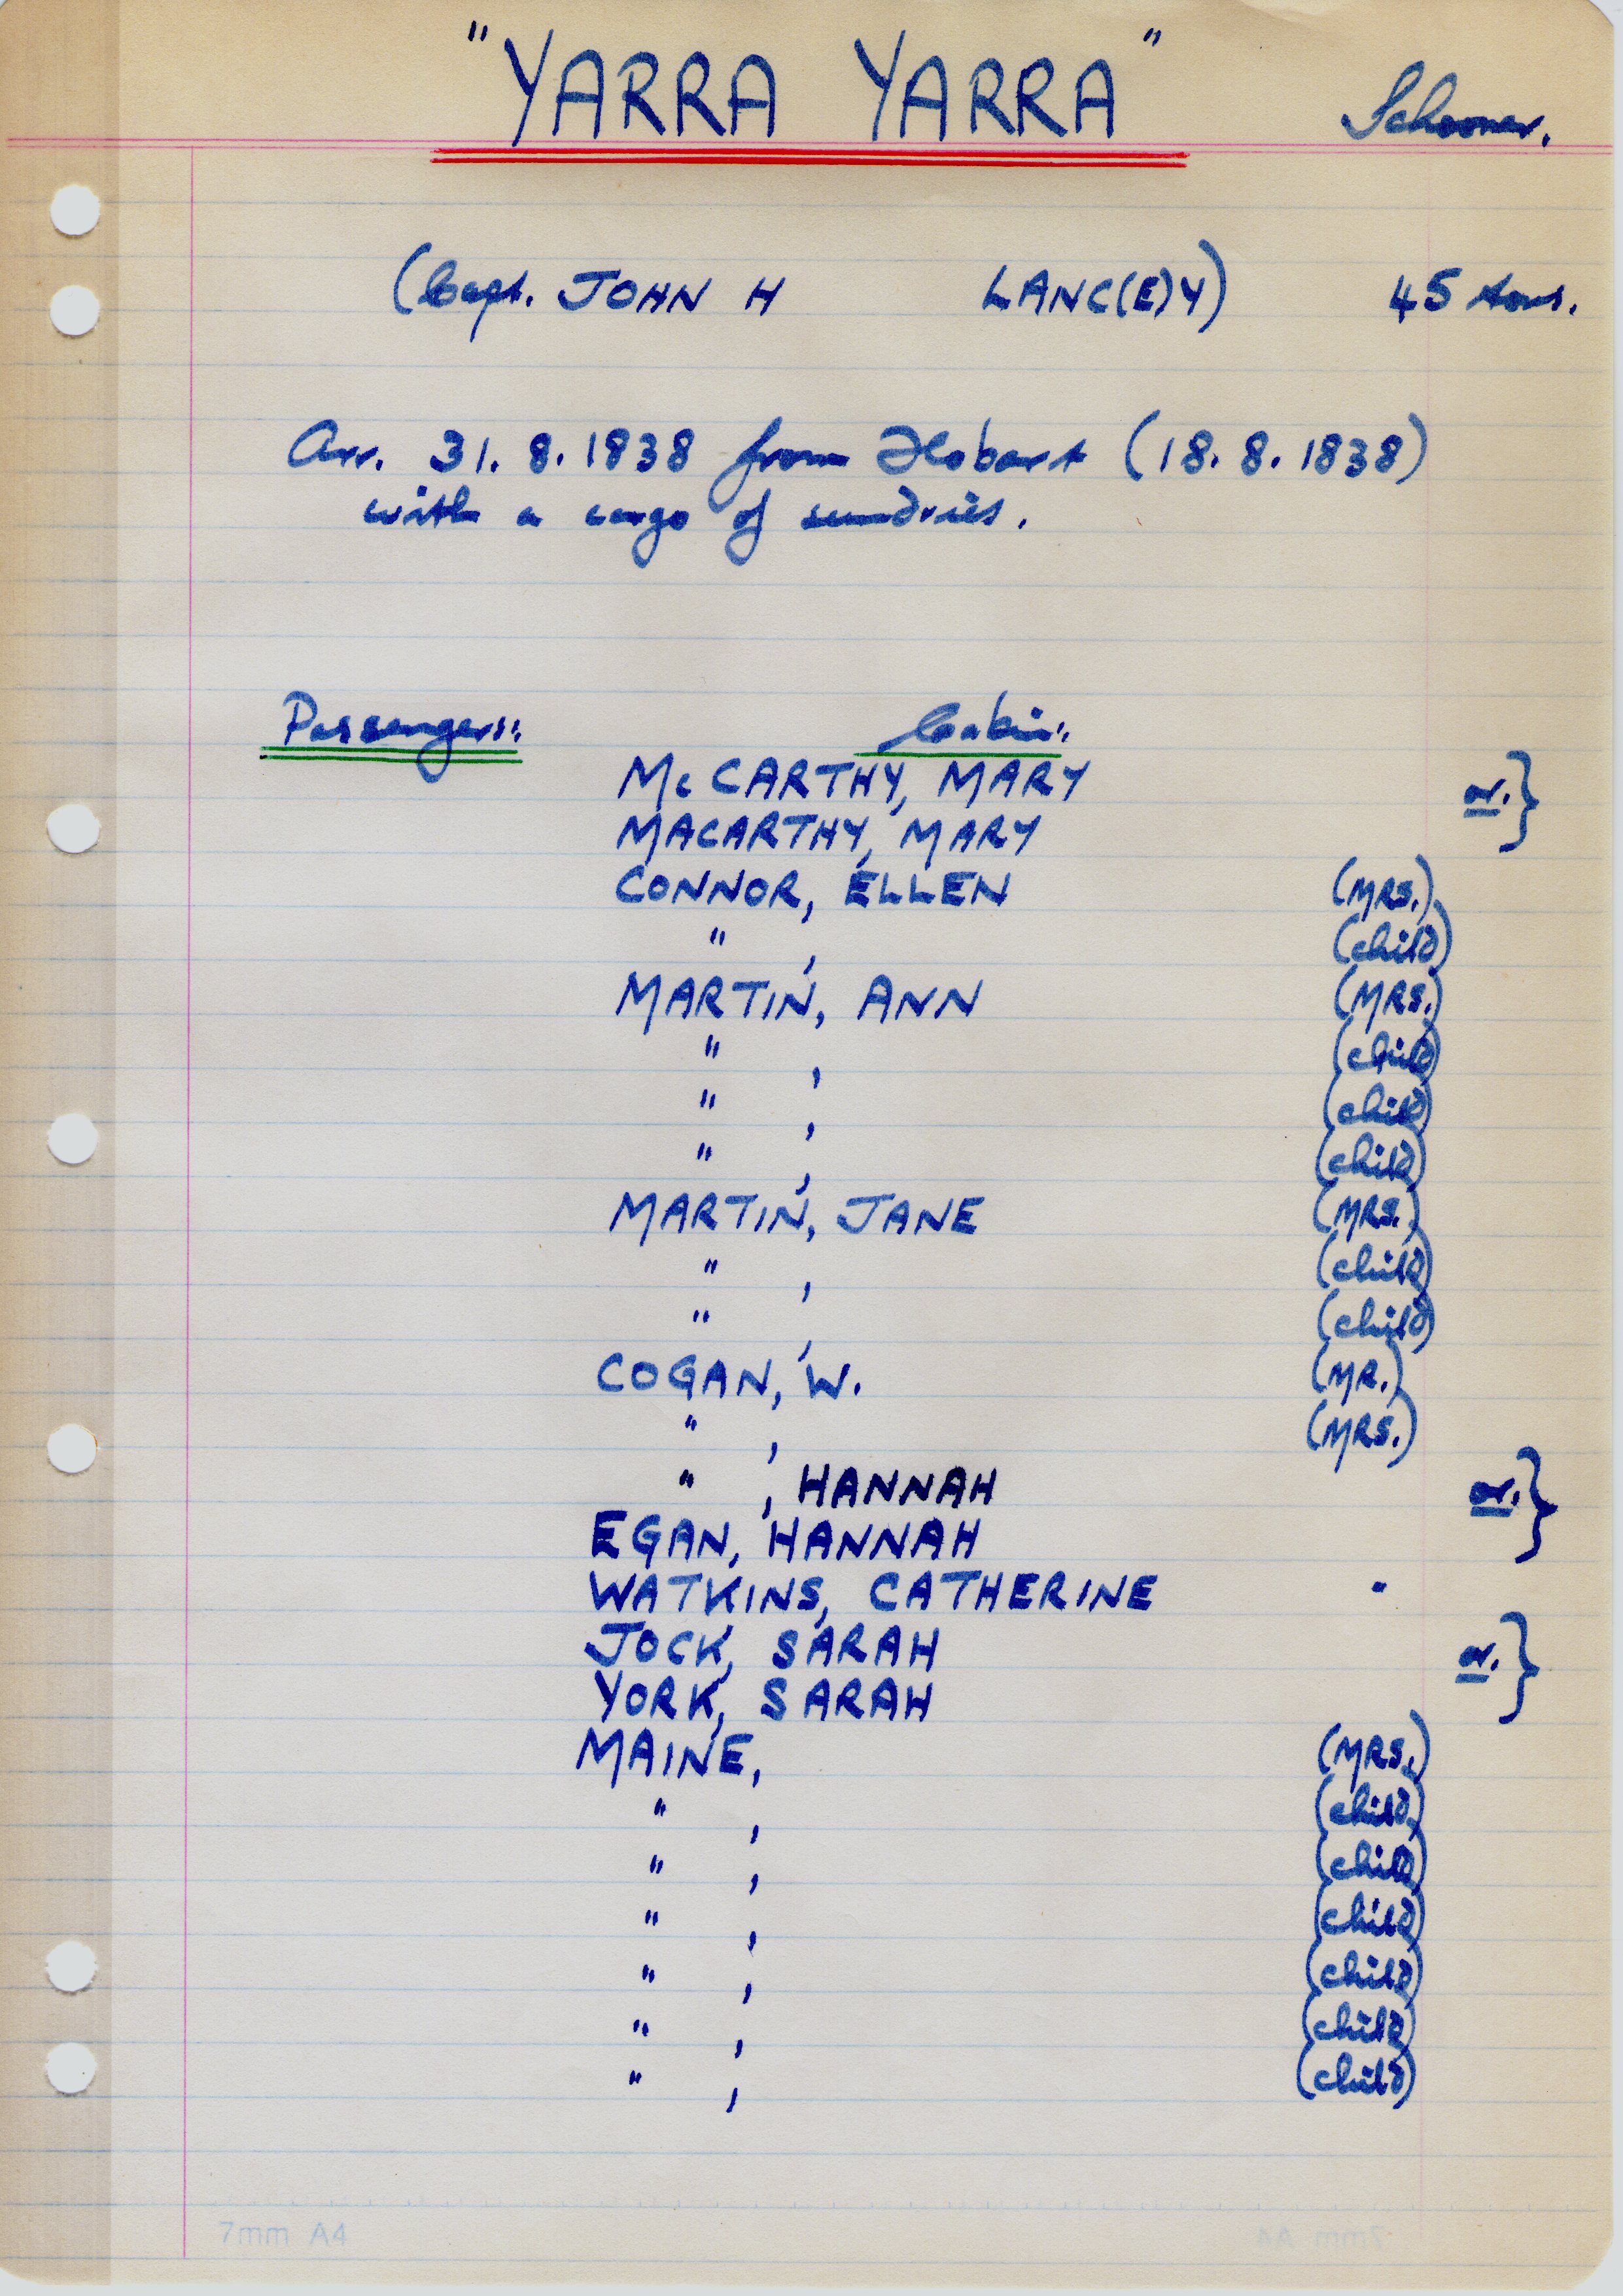 "YARRA YARRA" Schooner.
(Capt. JOHN H LANC(E)Y) 45 tons.
Arr. 31.8.1838 from Hobart (18.8.1838)
with a cargo of sundries.
Passengers: Cabin:
McCARTHY, MARY or. }
MACARTHY, MARY
CONNOR, ELLEN (MRS.)
" , (child)
MARTIN, ANN (MRS.)
" , (child)
" , (child)
" , (child)
MARTIN, JANE (MRS.)
" , (child)
" , (child)
COGAN, W. (MR.)
" , (MRS.)
" , HANNAH or. }
EGAN, HANNAH
WATKINS, CATHERINE
JOCK, SARAH or. }
YORK, SARAH
MAINE, (MRS.)
" , (child)
" , (child)
" , (child)
" , (child)
" , (child)
" , (child)
7mm A4